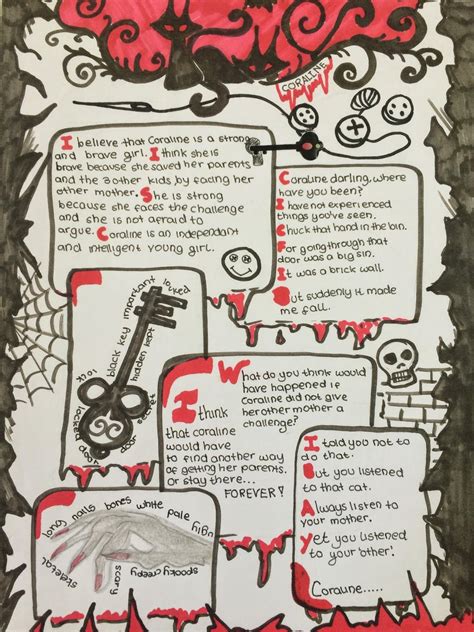 CORALINE
I believe that Coraline is a strong
and brave girl. I think she is
brave because she saved her parents
and the 3 other kids, by facing her
other mother. She is strong
because she faces the challenge
and she is not afraid to
argue. Coraline is an independant
and intelligent young girl.
Coraline darling, where
have you been?
I have not experienced
things you've seen.
Chuck that hand in the bin.
For going through that
door was a big sin.
It was a brick wall.
But suddenly it made
me fall.
locked
important
key
black
hidden kept
lock
locked
door
secrets
What do you think would
have happened if
Coraline did not give
her other mother a
challenge?
I think
that coraline
would have
to find another way
of getting her parents.
Or stay there...
FOREVER!
I told you not to
do that.
But you listened
to that cat.
Always listen to
your mother.
Yet you listened
to your 'other'.
Coraline.....
long nails bones white pale ugly
skeletal
scary
spooky creepy